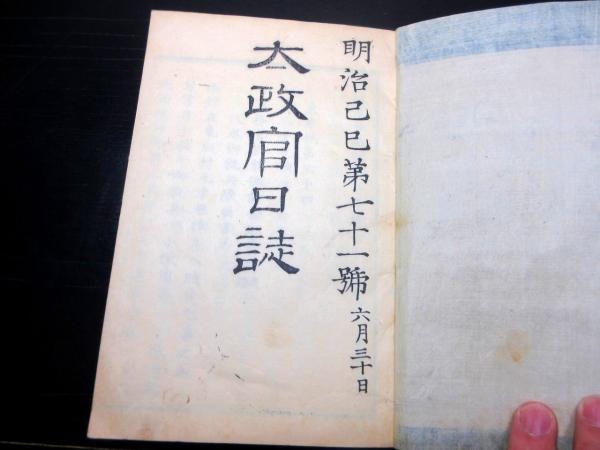 明治己巳第七十一號 六月三十日
太政官日誌